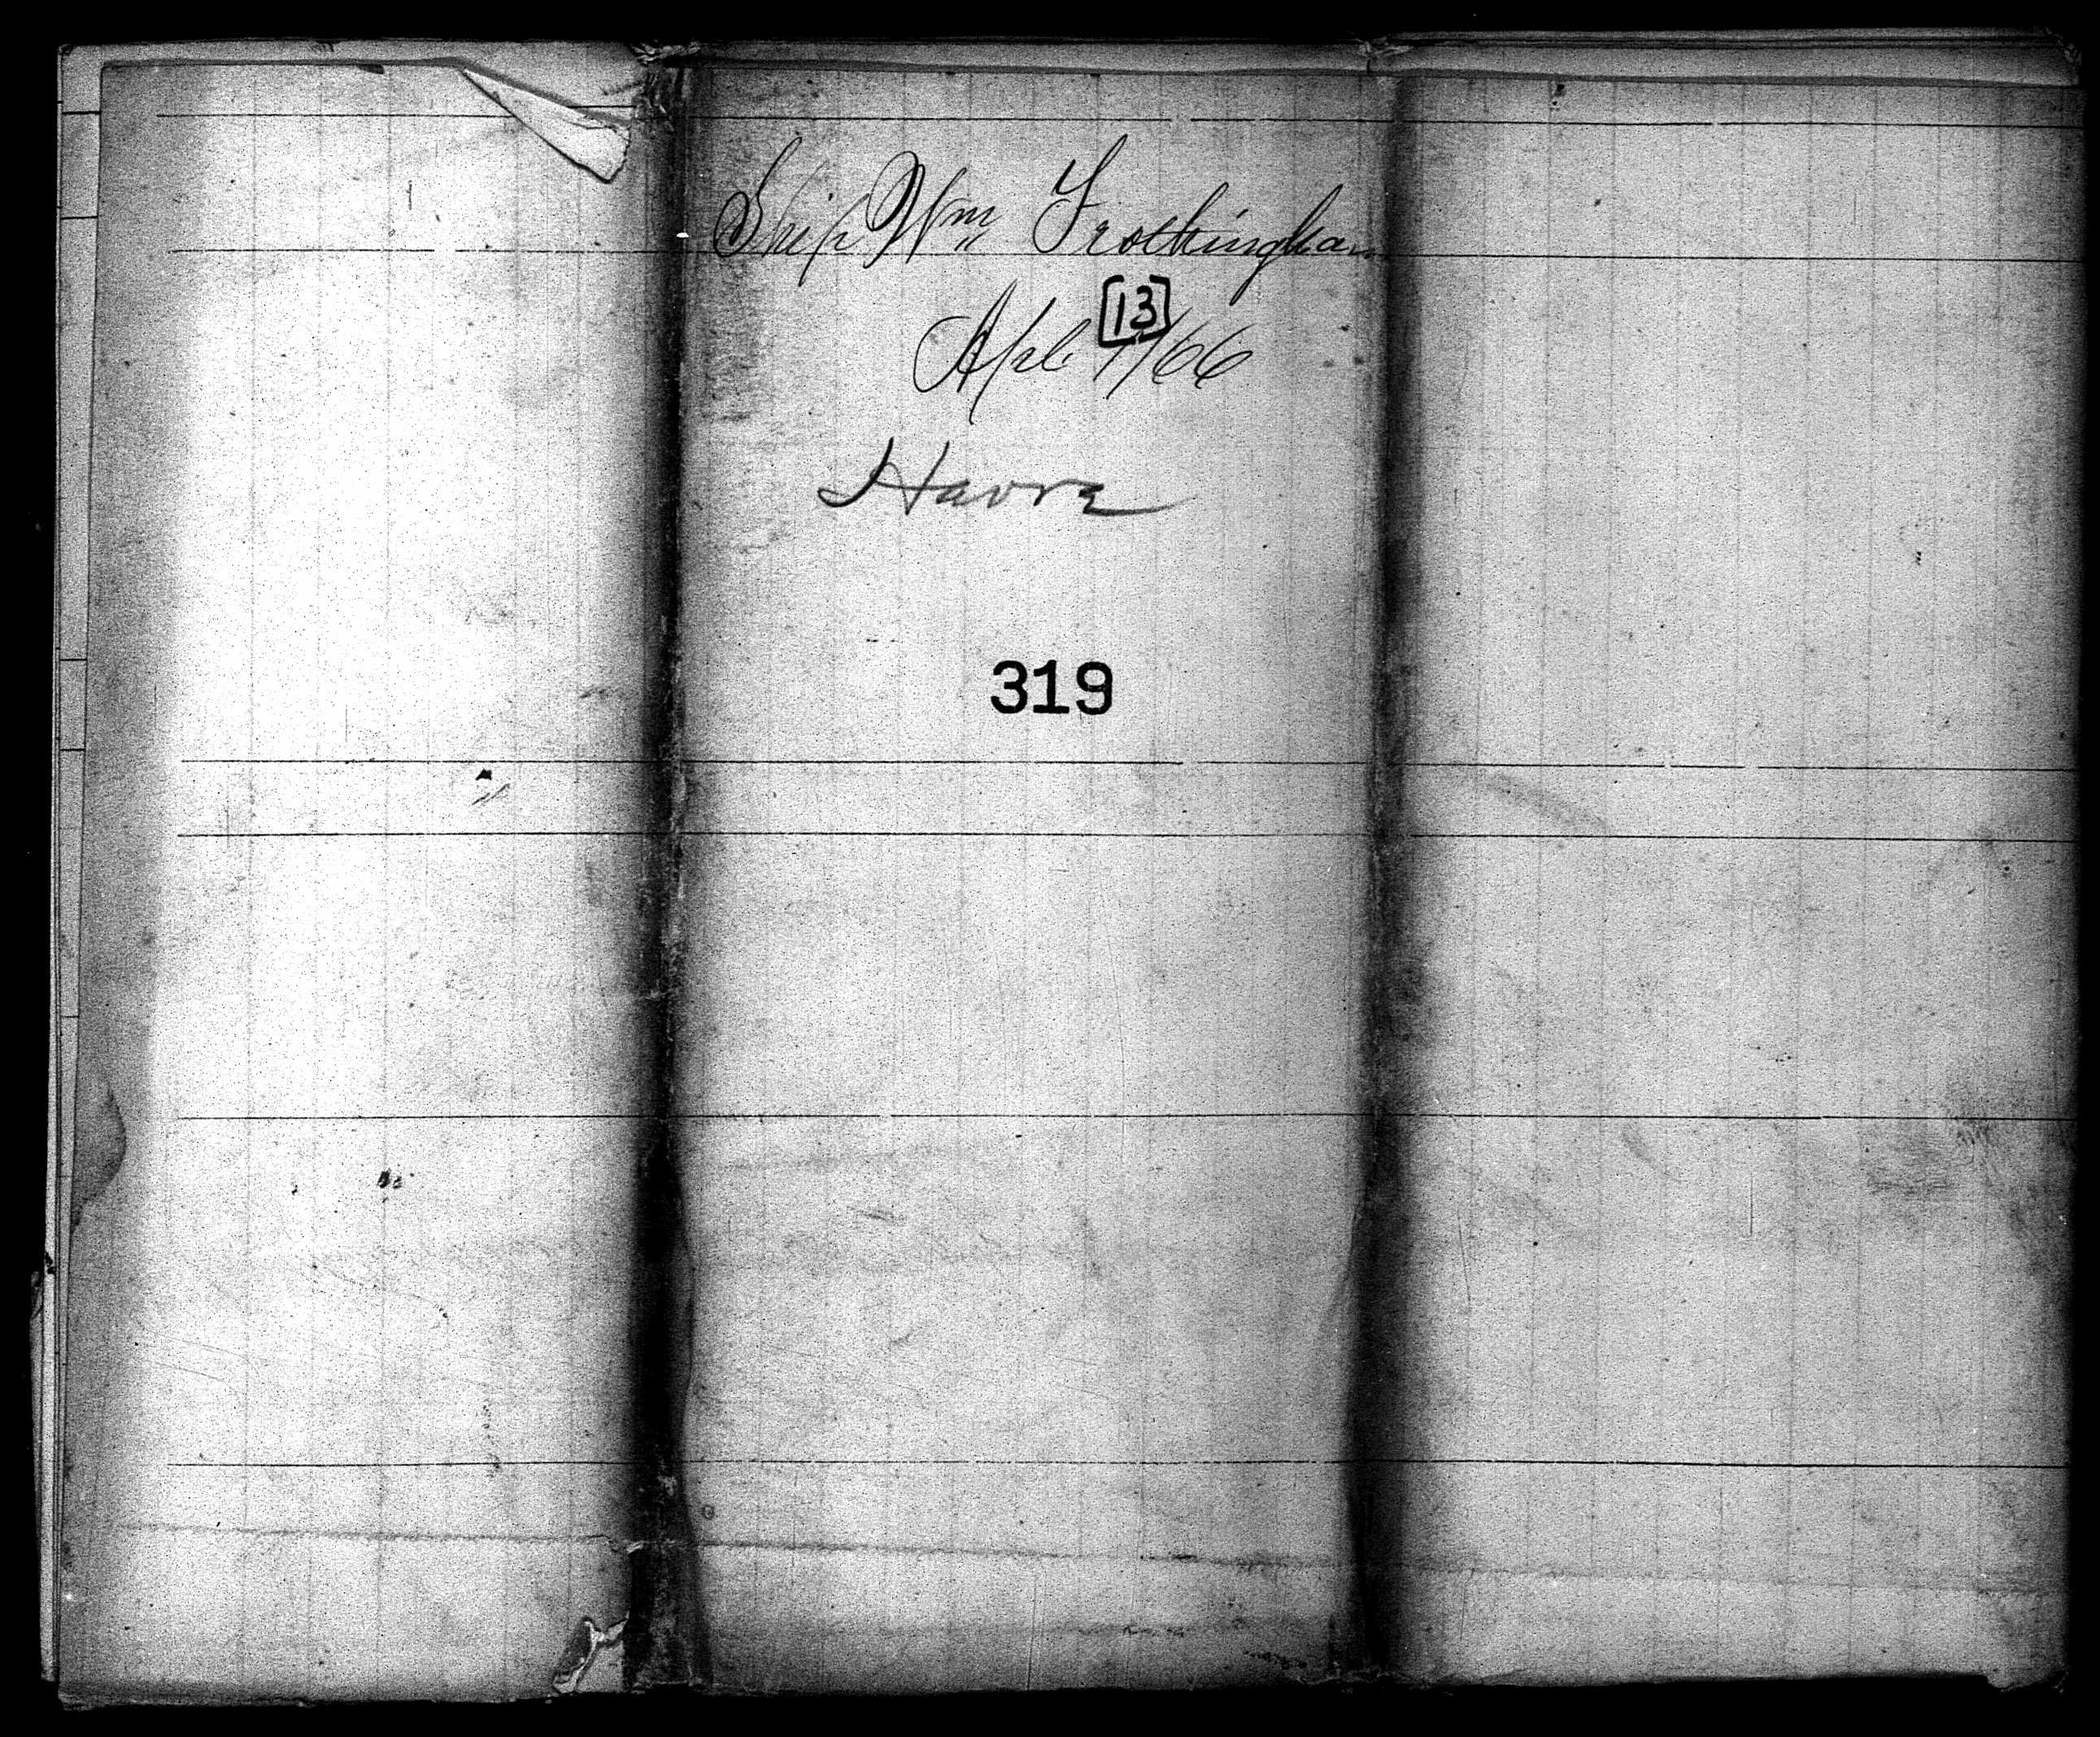 Ship Wm Frothingham
[13]
Apl 7/66
Havre
319